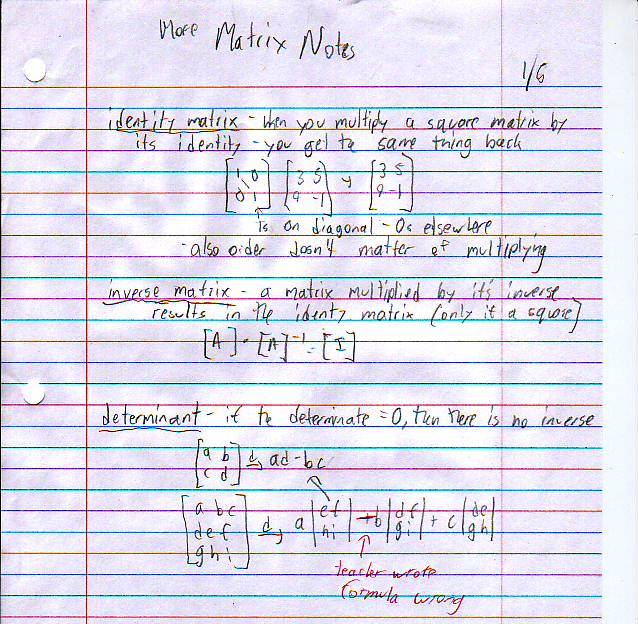 More Matrix Notes
1/6
identity matrix - when you multiply a square matrix by
its identity - you get the same thing back
[1 0 / 0 1] [3 5 / 9 -1] → [3 5 / 9 -1]
1s on diagonal - 0s elsewhere
- also order dosn't matter of multiplying
inverse matrix - a matrix multiplied by it's inverse
results in the identy matrix (only if a square)
[A] · [A]⁻¹ = [I]
determinant - if the determinate = 0, then there is no inverse
[a b / c d] d→ ad - bc
[a b c / d e f / g h i] d→ a |e f / h i| + b |d f / g i| + c |d e / g h|
teacher wrote
formula wrong